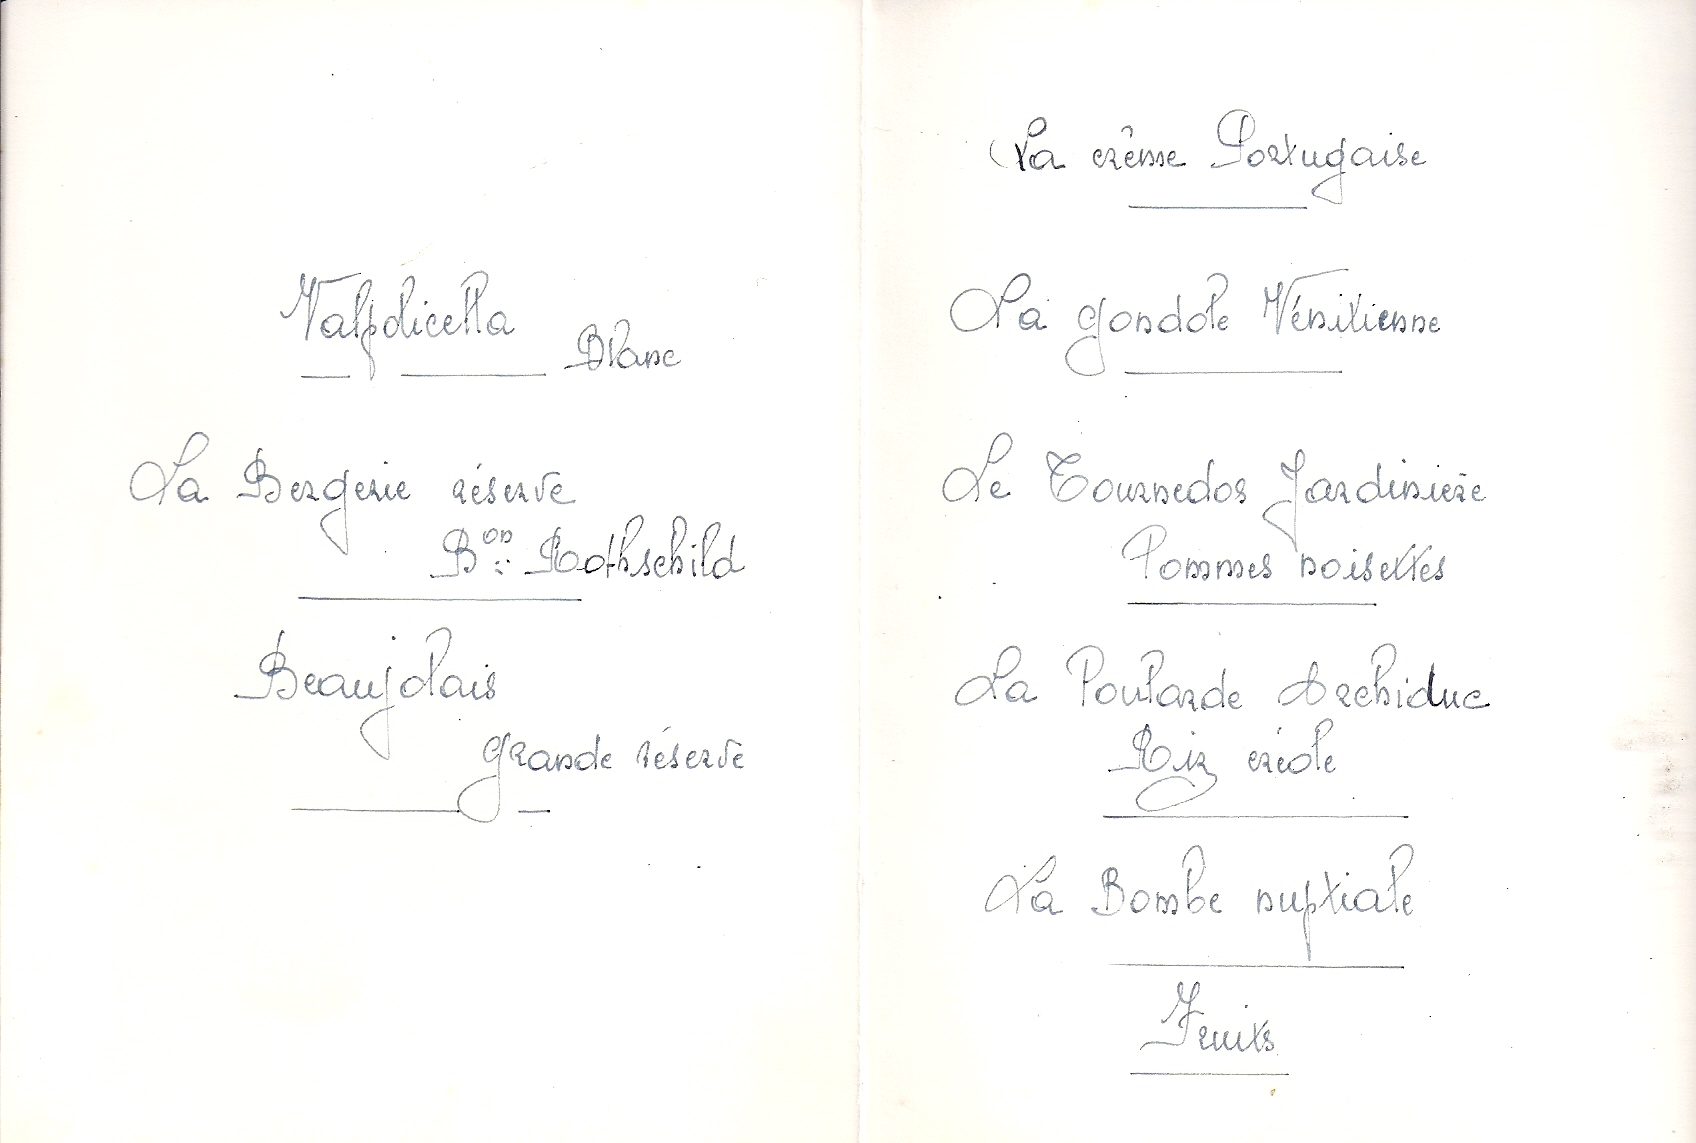 Valpolicella
Blanc
La Bergerie réserve
Bon Rothschild
Beaujolais
grande réserve
La crême Portugaise
La gondole Vénitienne
Le Tournedos Jardinière
Pommes noisettes
La Poularde Archiduc
Riz créole
La Bombe nuptiale
Fruits